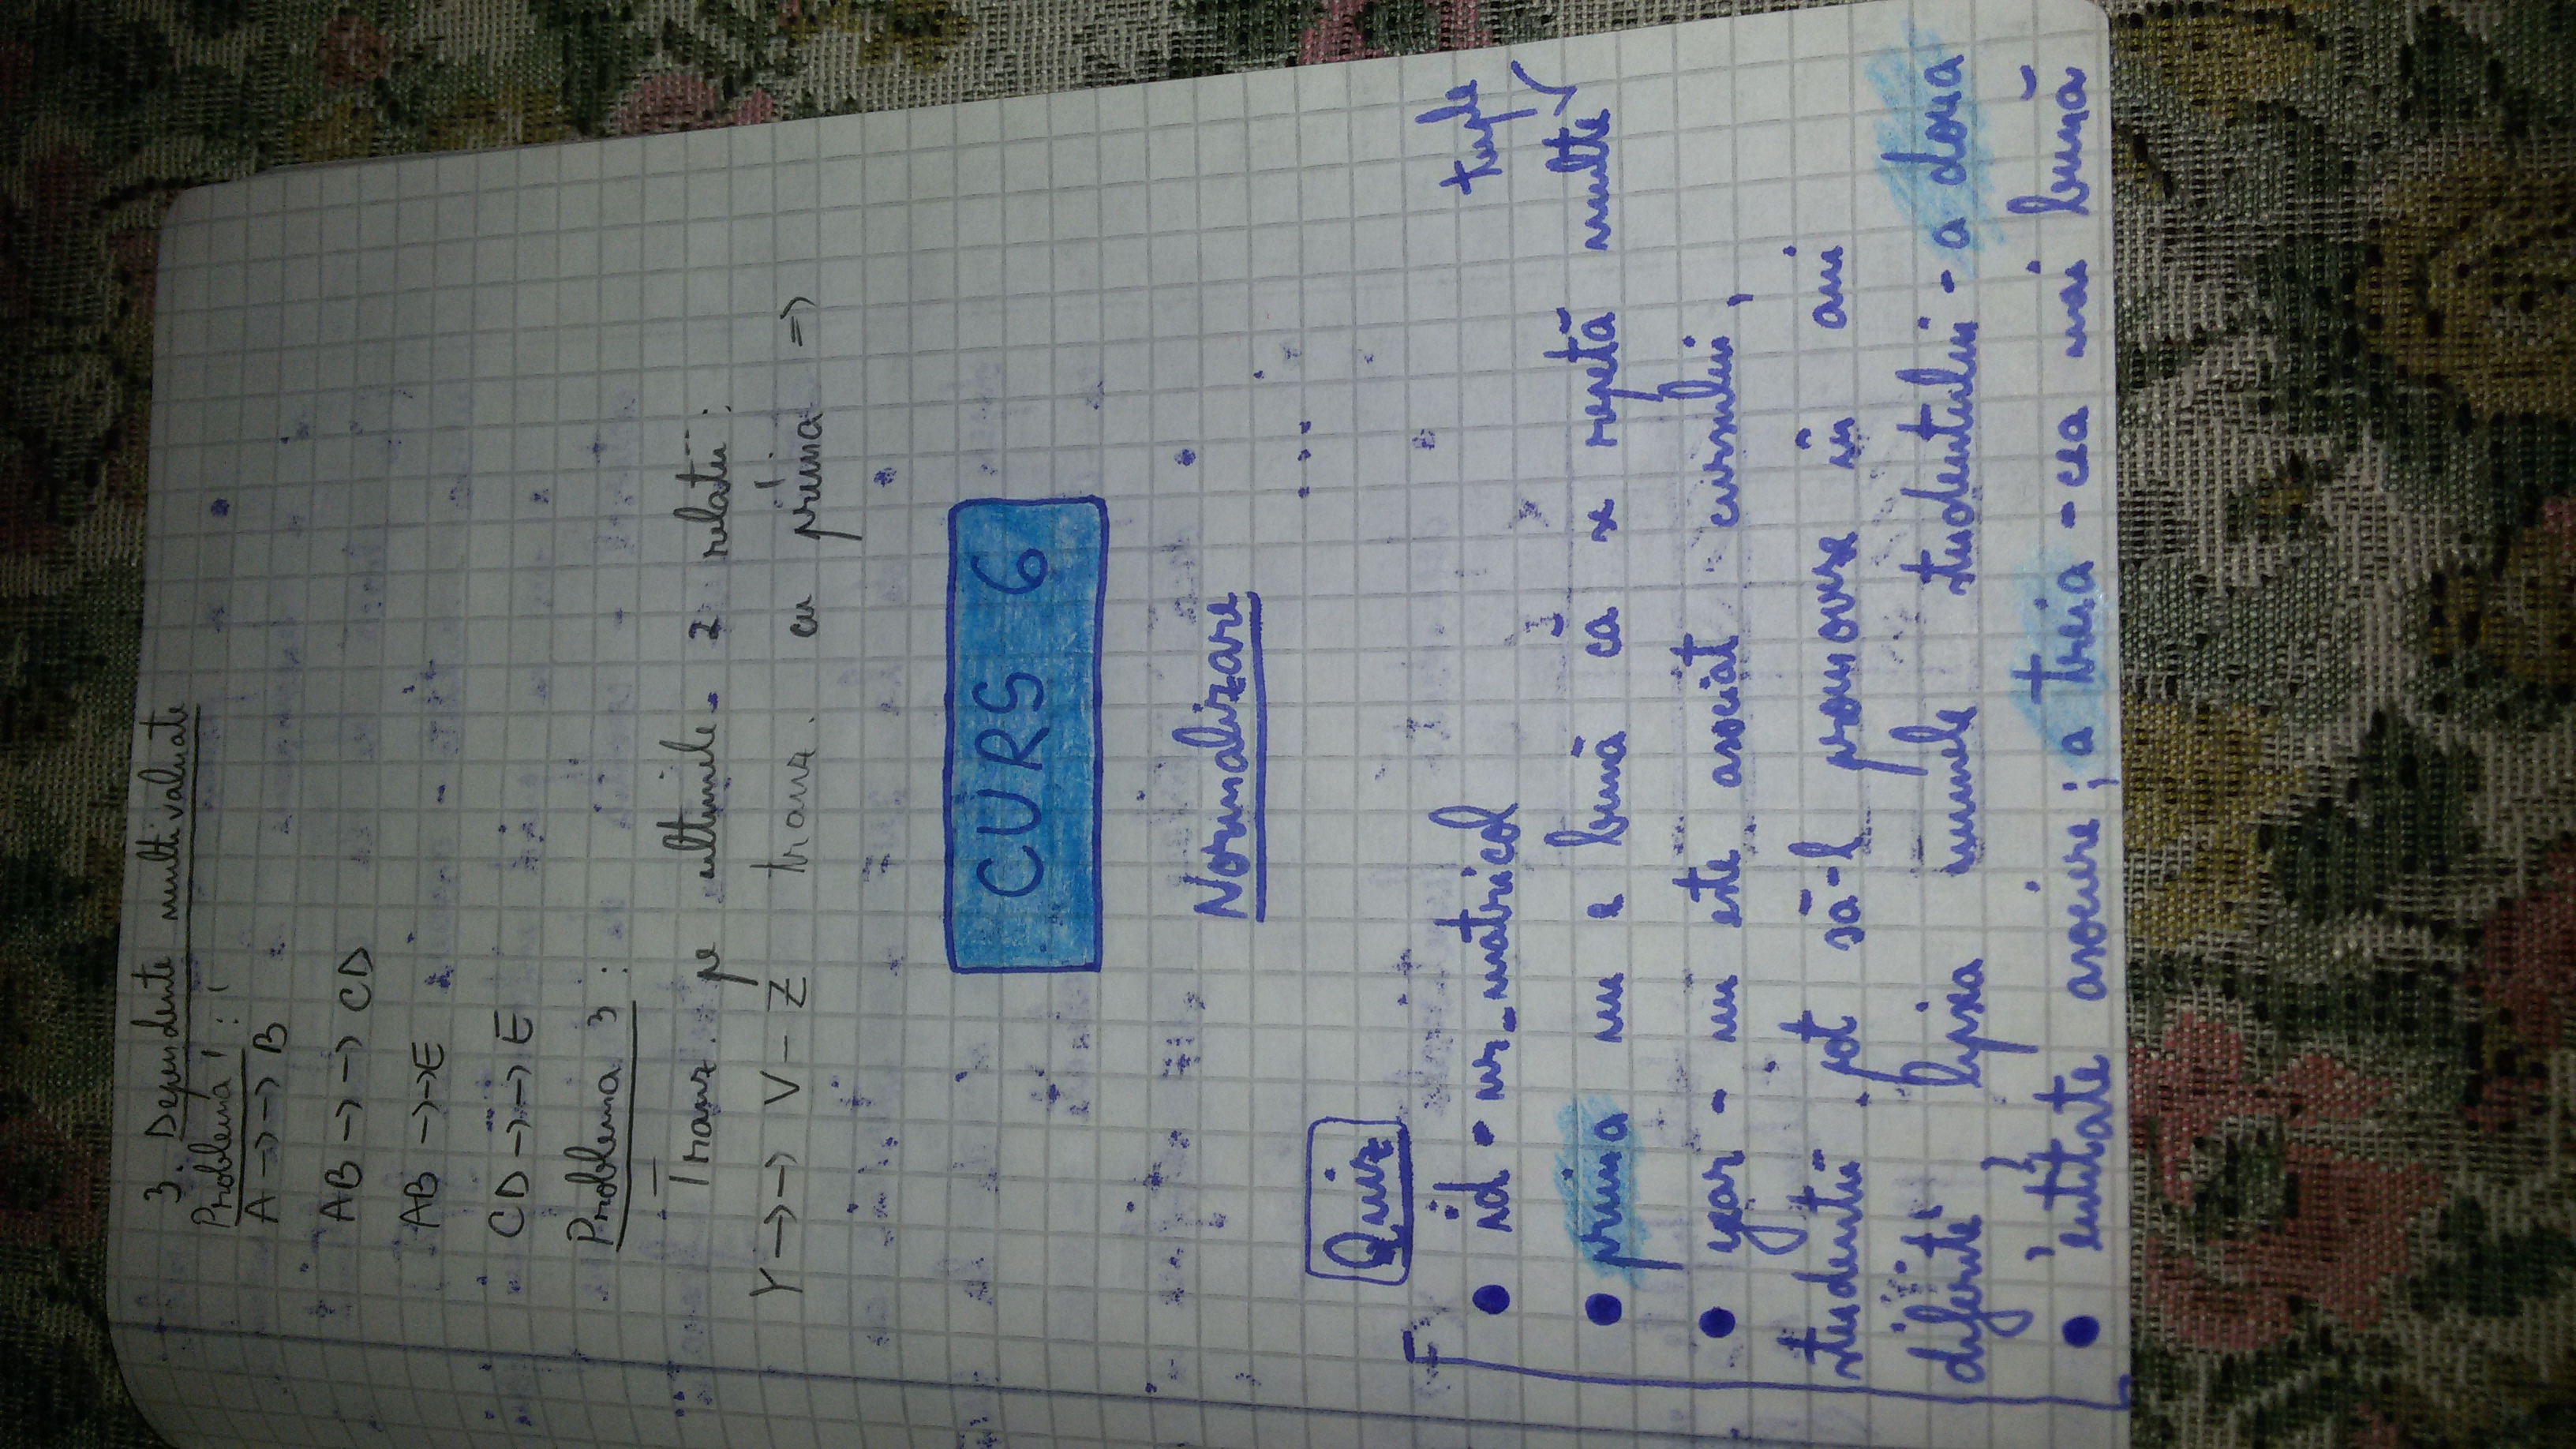 3. Dependente multivaluate
Problema 1 :
A →→ B
AB →→ CD
AB →→ E
CD →→ E
Problema 3 :
Tranz. pe ultimele 2 relatii :
Y →→ V - Z tranz. cu prima =>
CURS 6
Normalizare
...
Quiz
• id - nr_matricol
tuple
• prima nu e bună că se repetă multe
• year - nu este asociat cursului,
studentii pot să-l promoveze în ani
diferiti, lipsea numele studentului - a doua
• entitate asociere ; a treia - cea mai bună